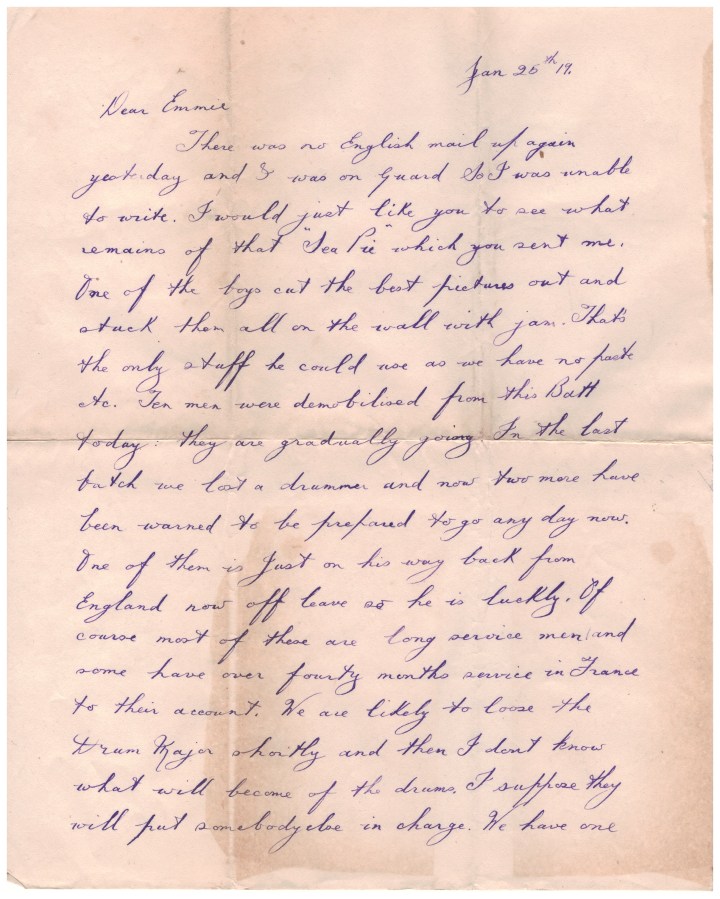 Jan 25th 19.
Dear Emmie
There was no English mail up again
yesterday and I was on Guard So I was unable
to write. I would just like you to see what
remains of that "Sea Pie" which you sent me.
One of the boys cut the best pictures out and
stuck them all on the wall with jam. That's
the only stuff he could use as we have no paste
etc. Ten men were demobilised from this Batt
today: they are gradually going. In the last
batch we lost a drummer and now two more have
been warned to be prepared to go any day now.
One of them is Just on his way back from
England now off leave so he is luckly. Of
course most of these are long service men and
some have over fourty months service in France
to their account. We are likely to loose the
Drum Major shortly and then I dont know
what will become of the drums. I suppose they
will put somebody else in charge. We have one